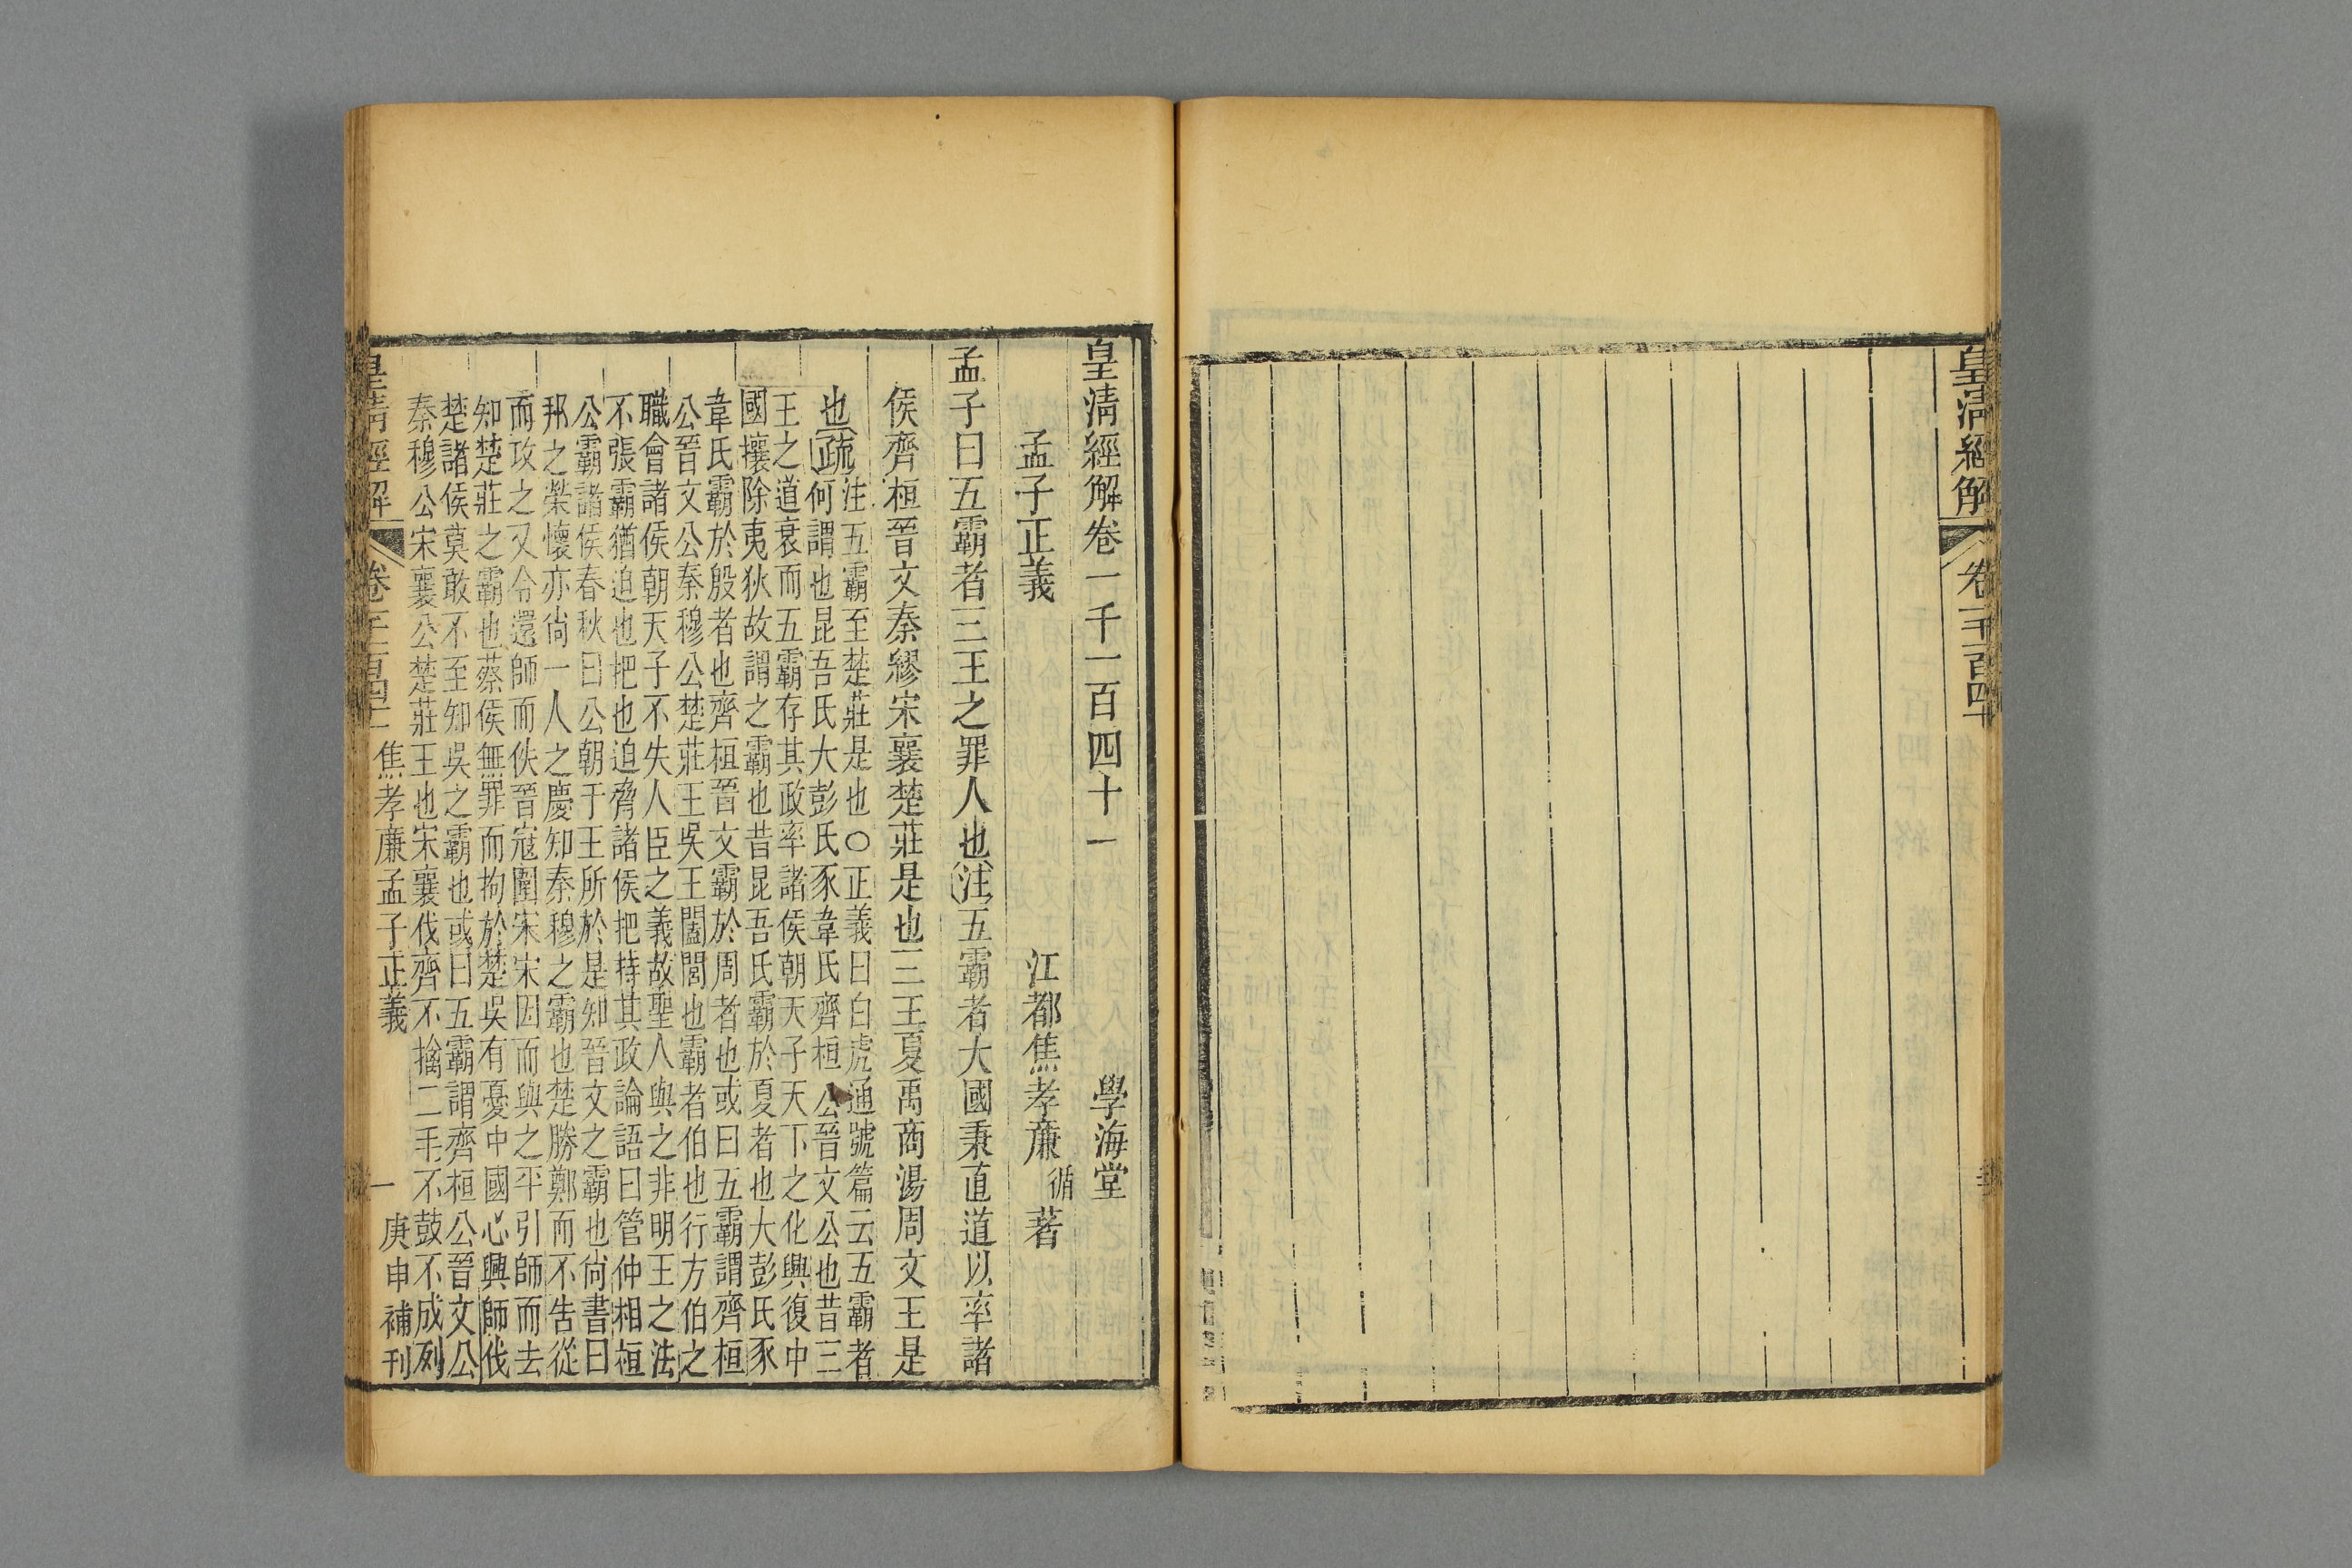 皇清經解 卷一千一百四十
皇清經解卷一千一百四十一 學海堂
孟子正義 江都焦孝廉循著
孟子曰五霸者三王之罪人也注五霸者大國秉直道以率諸
侯齊桓晉文秦繆宋襄楚莊是也三王夏禹商湯周文王是
也疏注五霸至楚莊是也○正義曰白虎通號篇云五霸者
何謂也昆吾氏大彭氏豕韋氏齊桓公晉文公也昔三
王之道衰而五霸存其政率諸侯朝天子天下之化興復中
國攘除夷狄故謂之霸也昔昆吾氏霸於夏者也大彭氏豕
韋氏霸於殷者也齊桓晉文霸於周者也或曰五霸謂齊桓
公晉文公秦穆公楚莊王吳王闔閭也霸者伯也行方伯之
職會諸侯朝天子不失人臣之義故聖人與之非明王之法
不張霸猶迫也把也迫脅諸侯把持其政論語曰管仲相桓
公霸諸侯春秋曰公朝于王所於是知晉文之霸也尚書曰
邦之榮懷亦尚一人之慶知秦穆之霸也楚勝鄭而不告從
而攻之又令還師而佚晉寇圍宋宋因而與之平引師而去
知楚莊之霸也蔡侯無罪而拘於楚吳有憂中國心興師伐
楚諸侯莫敢不至知吳之霸也或曰五霸謂齊桓公晉文公
秦穆公宋襄公楚莊王也宋襄伐齊不擒二毛不鼓不成列
皇清經解 卷一千一百四十一 焦孝廉孟子正義 一 庚申補刊